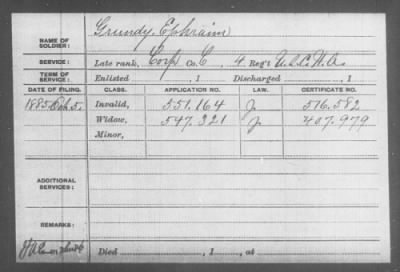 NAME OF SOLDIER: Grundy, Ephraim
SERVICE: Late rank, Corp Co. C, 4 Reg't U.S.C.H.A.
TERM OF SERVICE: Enlisted , 1 Discharged , 1
DATE OF FILING. CLASS. APPLICATION NO. LAW. CERTIFICATE NO.
1885 Feb. 5. Invalid, 551.164 J. 516.582
Widow, 547.321 J. 407.979
Minor,
ADDITIONAL SERVICES:
REMARKS:
Died , 1 , at